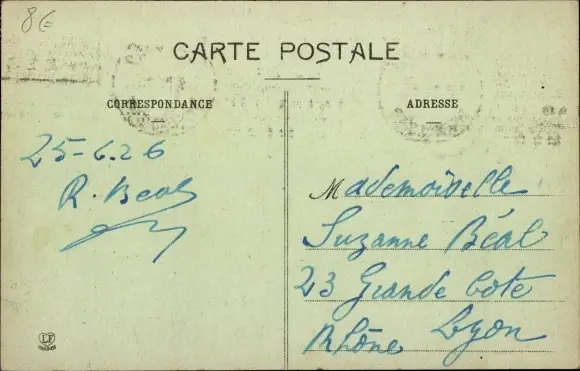 8€
CARTE POSTALE
CORRESPONDANCE
ADRESSE
25-6.26
R. Béal
Mademoiselle
Suzanne Béal
23 Grande Cote
Lyon
Rhône
LF